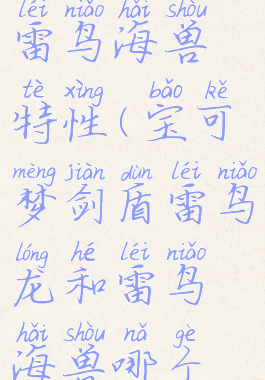 léi niǎo hǎi shòu
雷鸟海兽
tè xìng bǎo kě
特性(宝可
mèng jiàn dùn léi niǎo
梦剑盾雷鸟
lóng hé léi niǎo
龙和雷鸟
hǎi shòu nǎ gè
海兽哪个